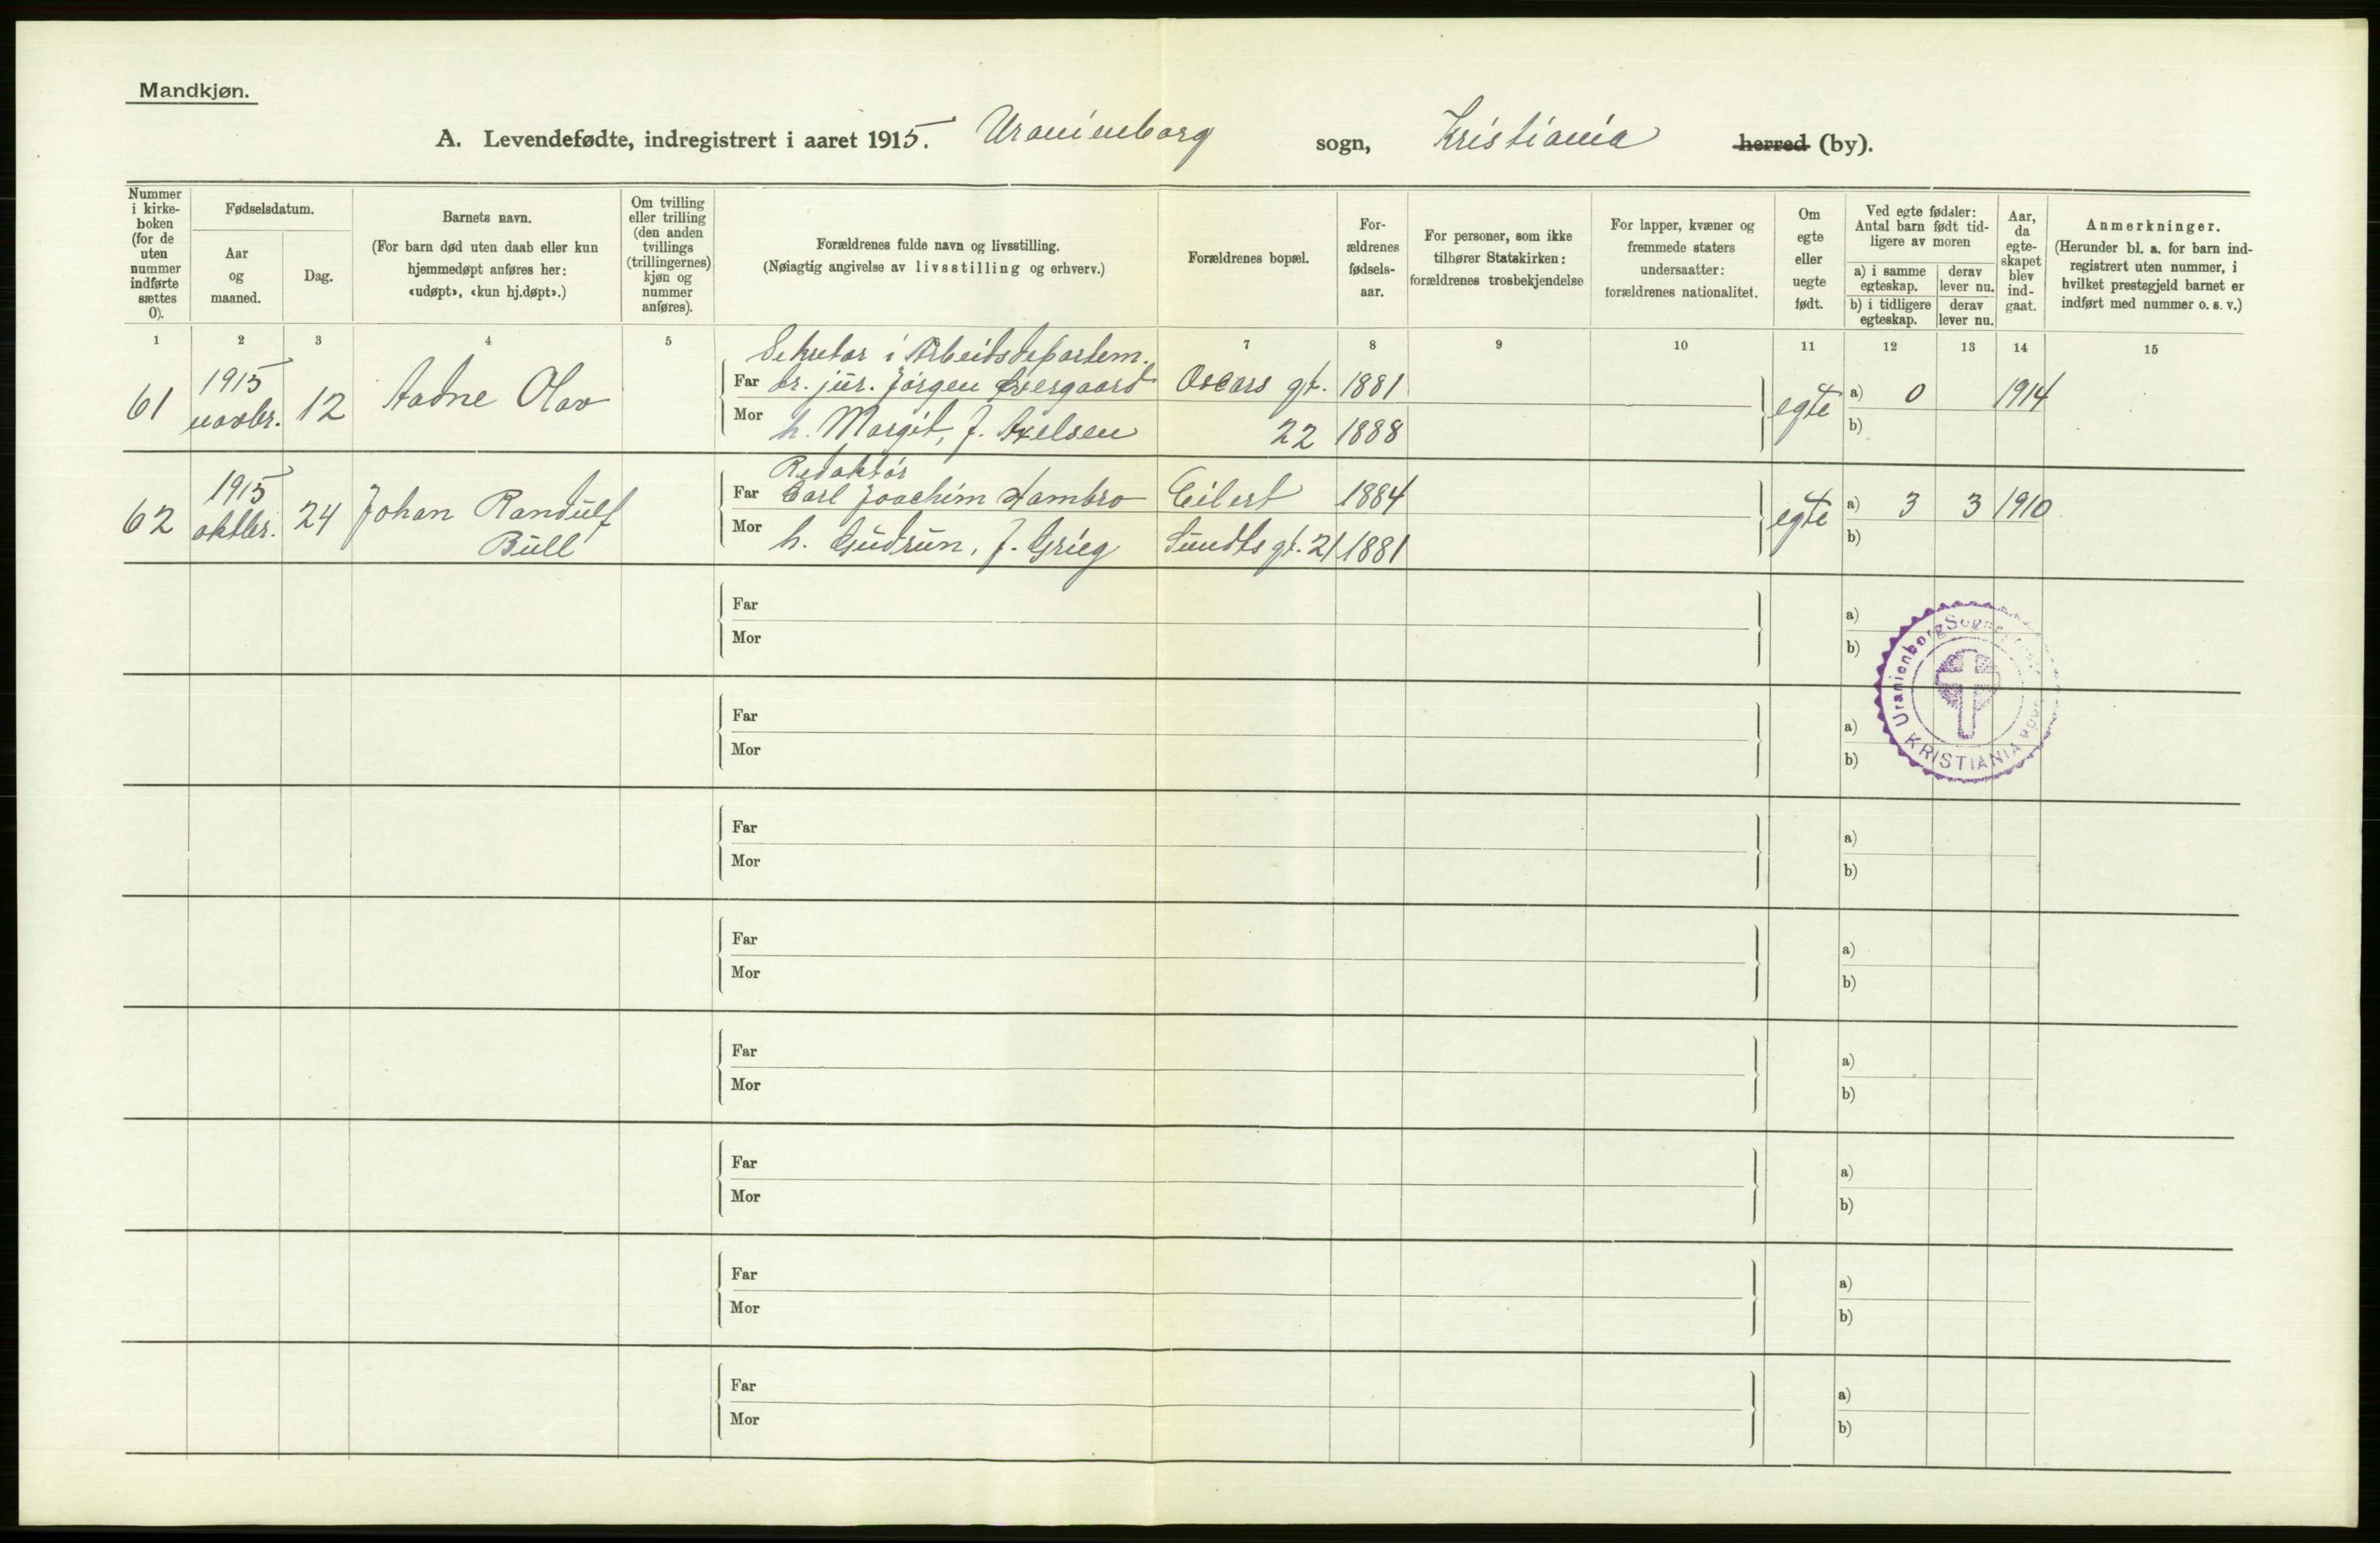 Mandkjøn.
A. Levendefødte, indregistrert i aaret 1915. Uranienborg sogn, Kristiania herred (by).
Nummer i kirke-boken (for de uten nummer indførte sættes 0).
Fødselsdatum.
Aar og maaned.
Dag.
Barnets navn.
(For barn død uten daab eller kun hjemmedøpt anføres her: «udøpt», «kun hj.døpt».)
Om tvilling eller trilling (den anden tvillings (trillingernes) kjøn og nummer anføres).
Forældrenes fulde navn og livsstilling.
(Nøiagtig angivelse av livsstilling og erhverv.)
Forældrenes bopæl.
For-ældrenes fødsels-aar.
For personer, som ikke tilhører Statskirken: forældrenes trosbekjendelse
For lapper, kvæner og fremmede staters undersaatter: forældrenes nationalitet.
Om egte eller uegte født.
Ved egte fødsler: Antal barn født tid-ligere av moren
a) i samme egteskap.
derav lever nu.
b) i tidligere egteskap.
derav lever nu.
Aar, da egte-skapet blev ind-gaat.
Anmerkninger.
(Herunder bl. a. for barn ind-registrert uten nummer, i hvilket prestegjeld barnet er indført med nummer o. s. v.)
1 2 3 4 5 7 8 9 10 11 12 13 14 15
Sekretær i Arbeidsdepartem.
61 1915 novbr. 12 Aadne Olav Far dr. jur. Jørgen Øvergaard Oscars gt. 1881 egte a) 0 1914
Mor h. Margit, f. Axelsen 22 1888 b)
Redaktør
62 1915 oktbr. 24 Johan Randulf Far Carl Joachim Hambro Eilert 1884 egte a) 3 3 1910
Bull Mor h. Gudrun, f. Grieg Sundts gt. 21 1881 b)
Far a)
Mor b)
Uranienborg
KRISTIANIA
Far a)
Mor b)
Far a)
Mor b)
Far a)
Mor b)
Far a)
Mor b)
Far a)
Mor b)
Far a)
Mor b)
Far a)
Mor b)